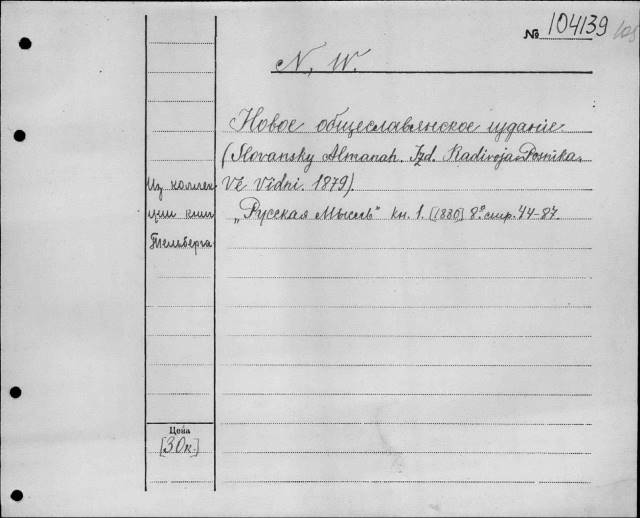 № 104139
N. W.
Новое общеславянское изданіе
(Slovansky Almanah. Izd. Radivoja Poznika.
Vě Vidni. 1879).
„Русская Мысль" кн. 1. [1880] 8º стр. 44-87.
Из коллек-
ции книг
Тельберга
Цена
[30к.]